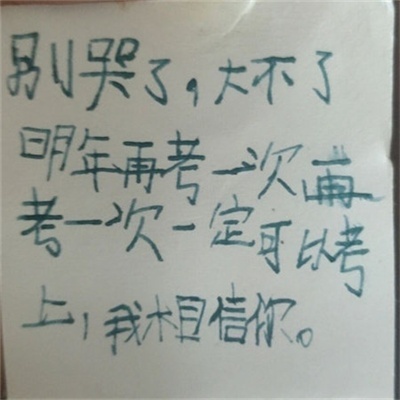 别哭了，大不了
明年再考一次再
考一次一定可以考
上，我相信你。